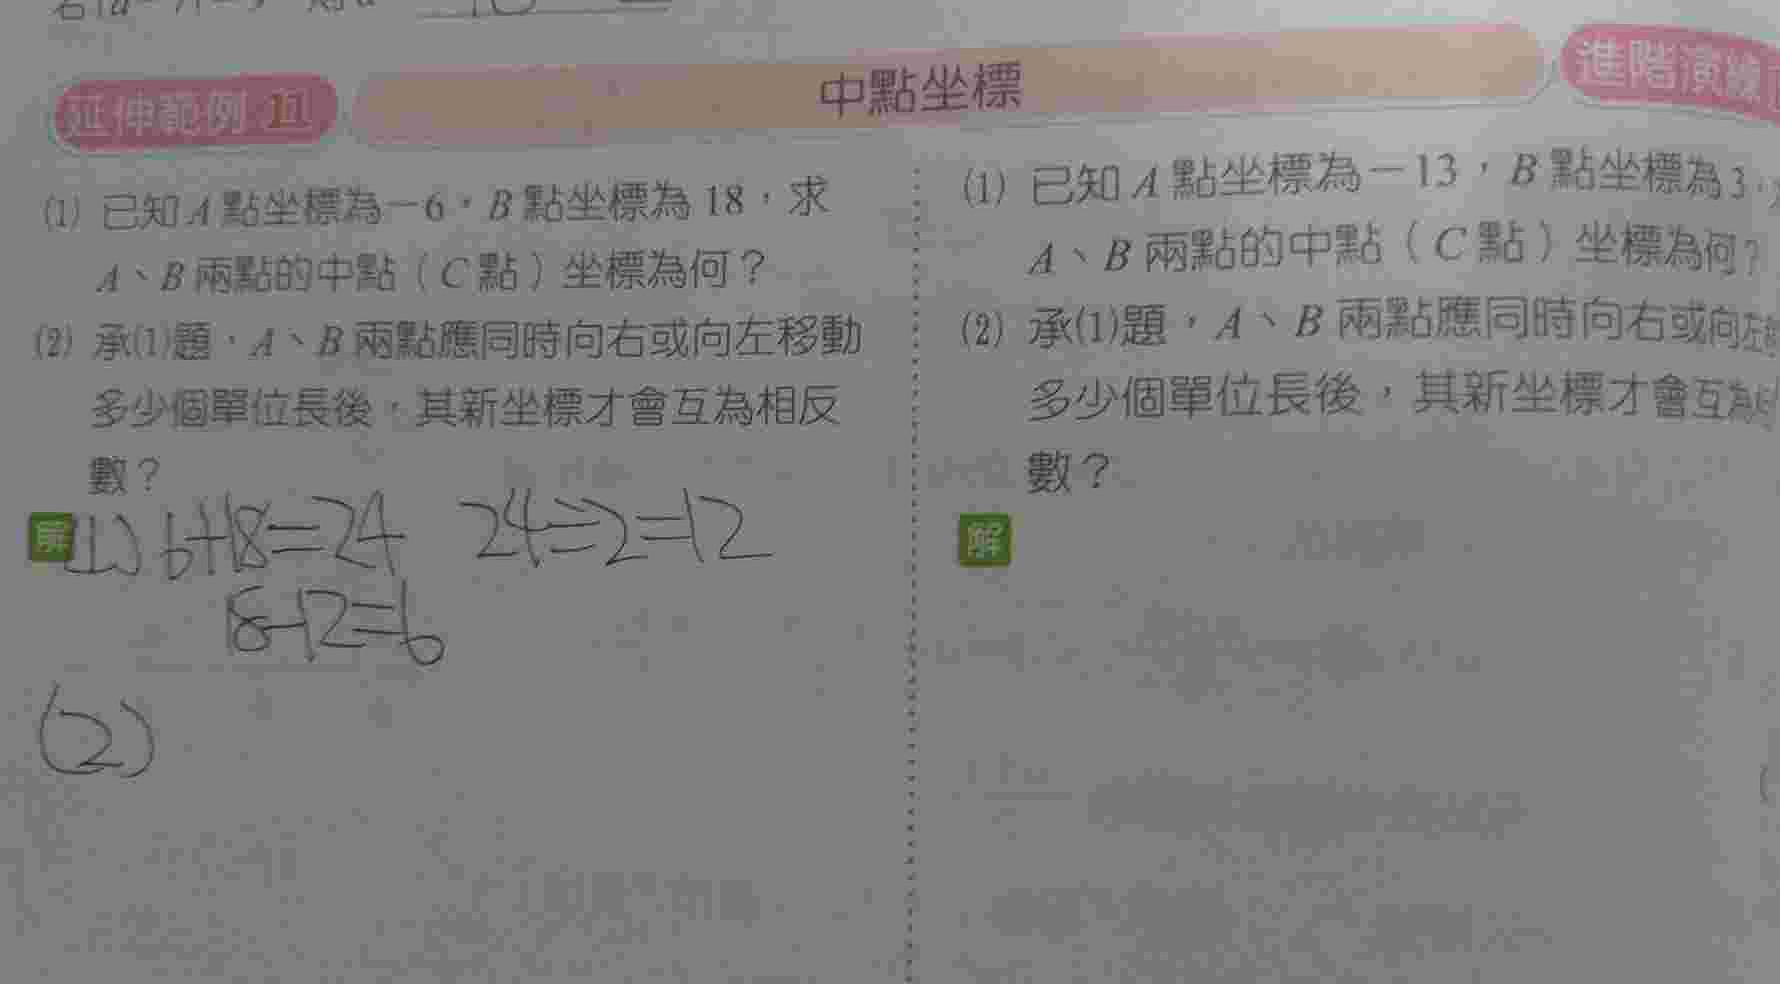 延伸範例 11
中點坐標
進階演練
(1) 已知 A 點坐標為－6，B 點坐標為 18，求
A、B 兩點的中點（C 點）坐標為何？
(2) 承(1)題，A、B 兩點應同時向右或向左移動
多少個單位長後，其新坐標才會互為相反
數？
解 (1) 6+18=24 24÷2=12
18-12=6
(2)
(1) 已知 A 點坐標為－13，B 點坐標為 3，
A、B 兩點的中點（C 點）坐標為何？
(2) 承(1)題，A、B 兩點應同時向右或向左
多少個單位長後，其新坐標才會互為
數？
解